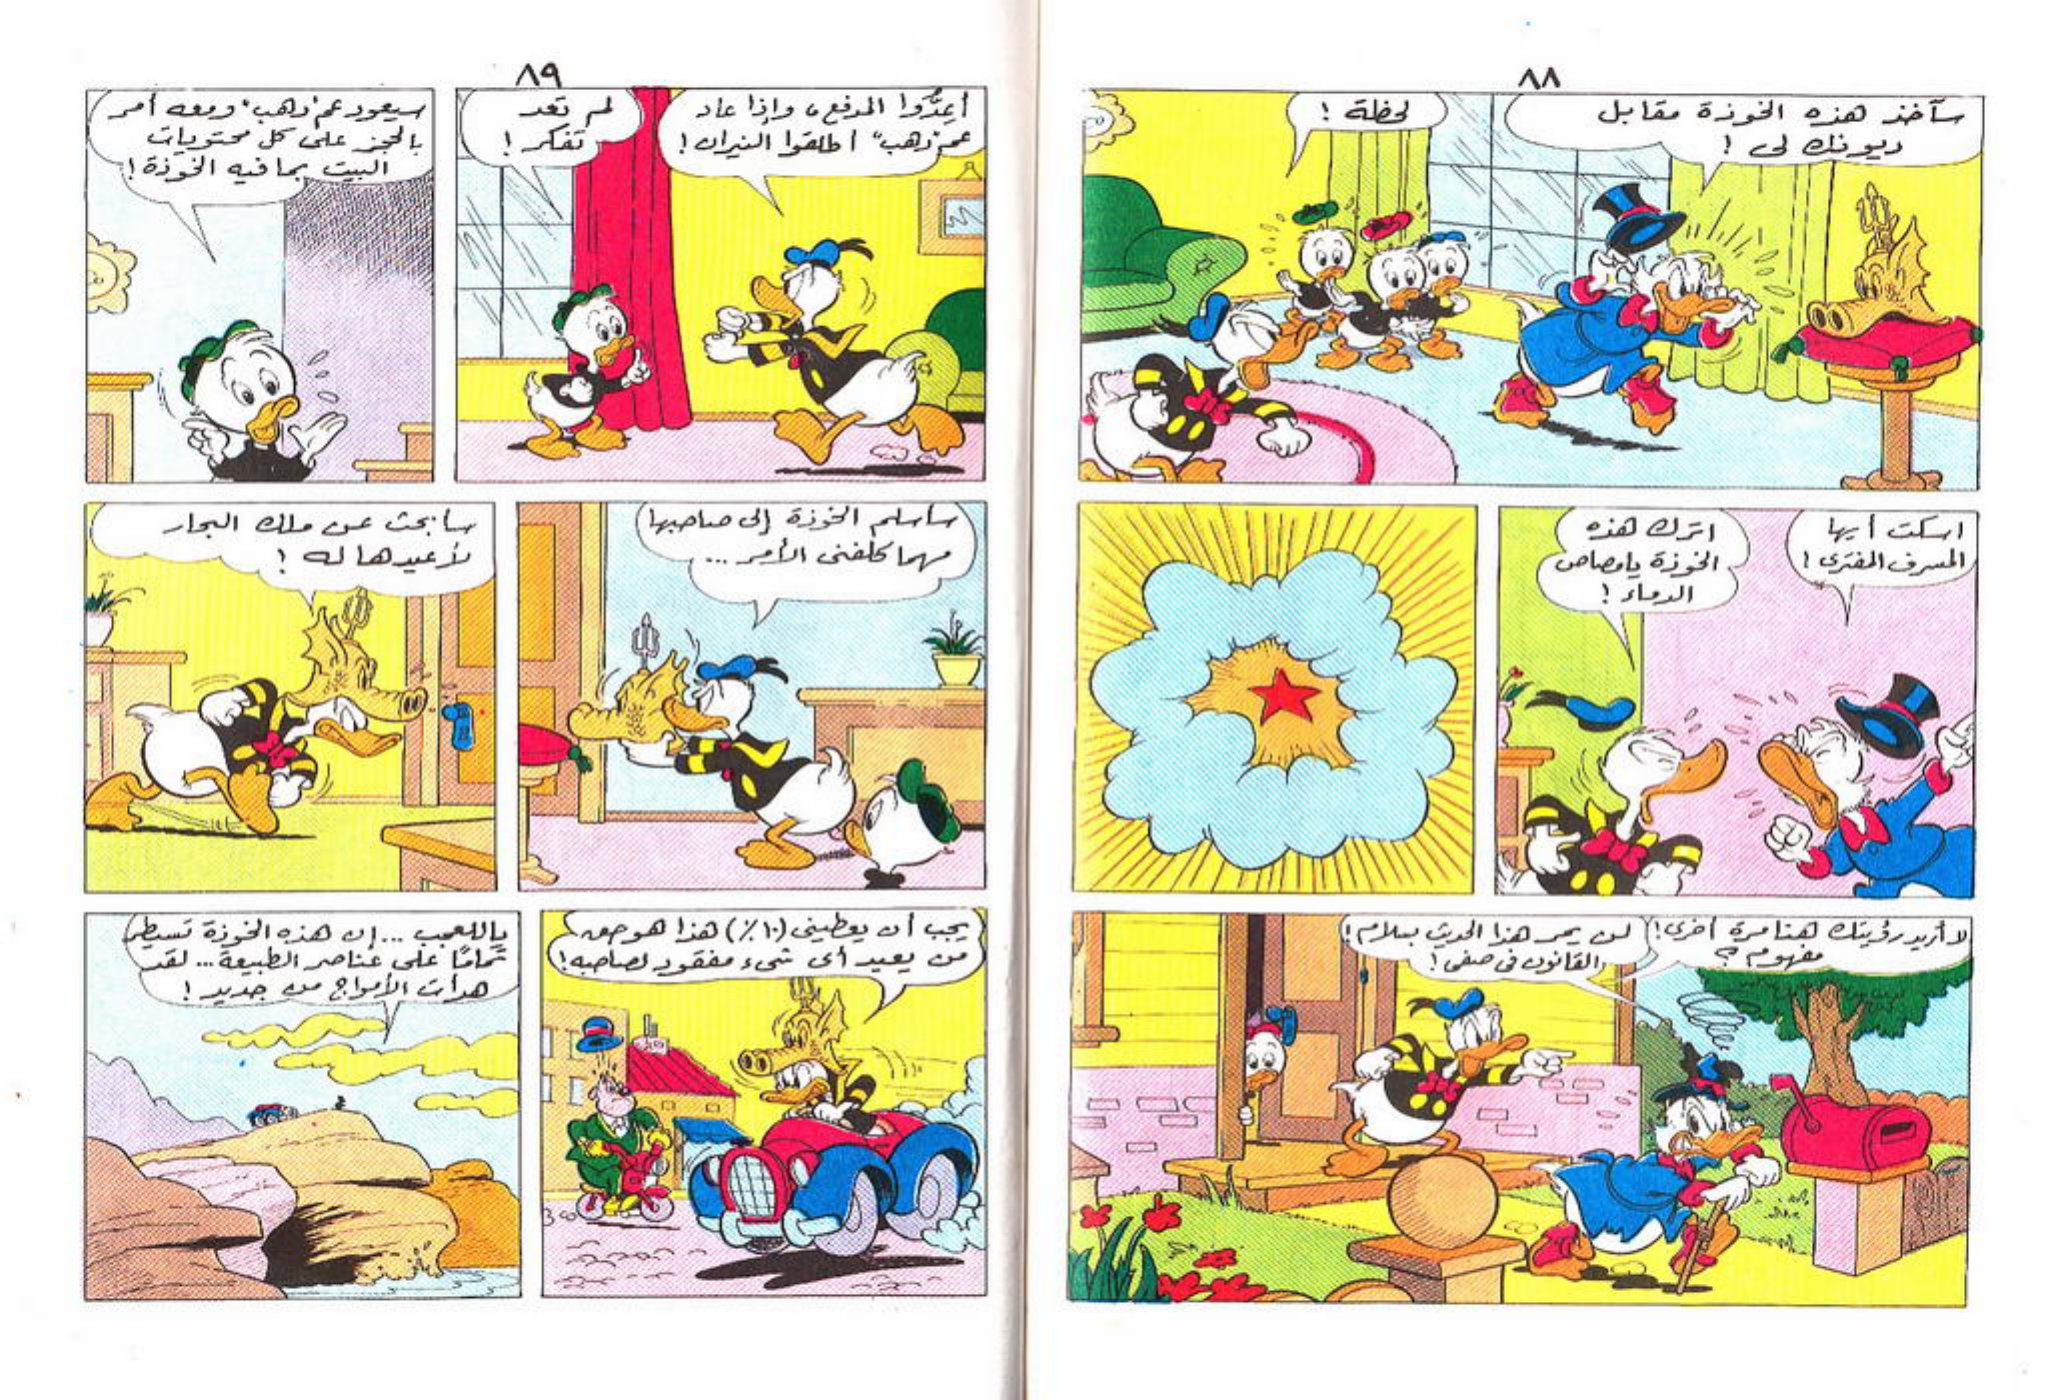 ٨٨
سآخذ هذه الخوذة مقابل
ديونك لى !
لحظة !
اسكت أيها
المسرف المفترى !
اترك هذه
الخوذة يا مصاص
الدماء !
لا أريد رؤيتك هنا مرة أخرى !
مفهوم ؟
لن يمر هذا الحدث بسلام !
القانون فى صفى !
٨٩
أعِدُّوا المدفع ، وإذا عاد
عم "دهب" أطلقوا النيران !
لم تعد
تفكر !
سيعود عم "دهب" ومعه أمر
بالحجز على كل محتويات
البيت بما فيه الخوذة !
سأسلم الخوذة إلى صاحبها
مهما كلفنى الأمر ...
سأبحث عن ملك البحار
لأعيدها له !
يجب أن يعطينى (١٠٪) هذا هو حق
من يعيد أى شىء مفقود لصاحبه !
ياللعجب ... إن هذه الخوذة تسيطر
تمامًا على عناصر الطبيعة ... لقد
هدأت الأمواج من جديد !